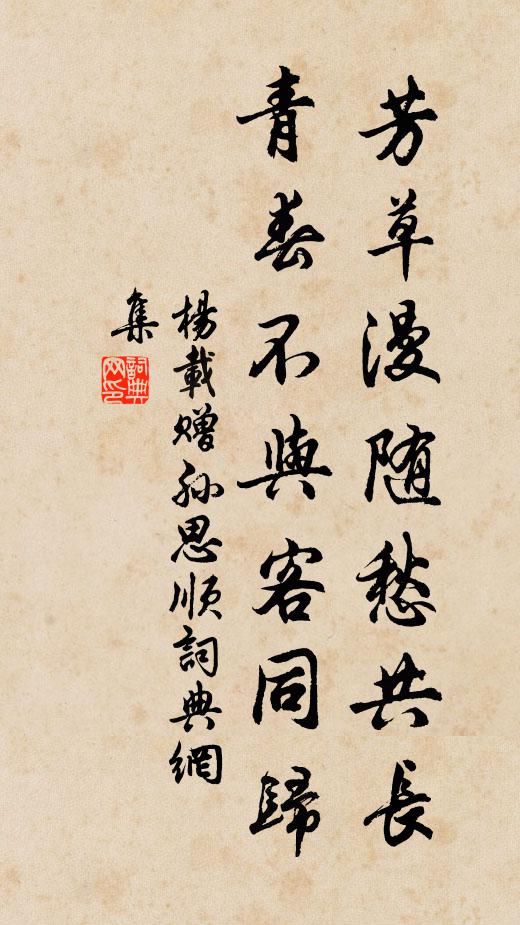 芳草漫随愁共長
青春不與客同歸
楊載贈孙思順詞典網
集
詞典
网印